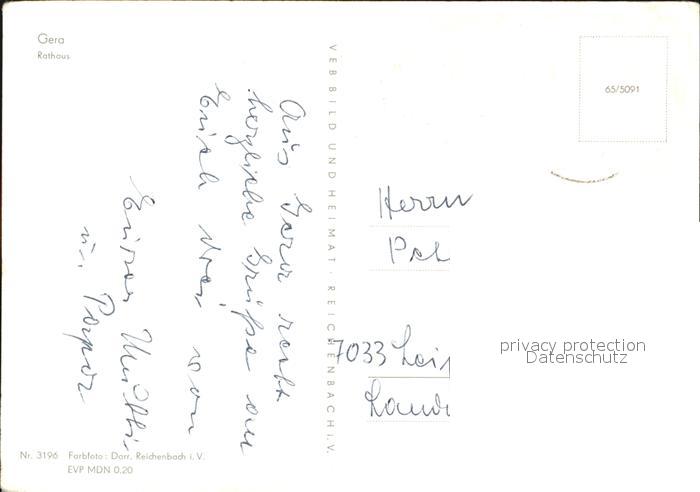 Gera
Rathaus
VEB BILD UND HEIMAT · REICHENBACH I. V.
65/5091
Aus Gera recht
herzliche Grüße an
Euch drei von
Eurer Mutti
u. Papa
Herrn
7033 Lei
privacy protection
Datenschutz
Nr. 3196 Farbfoto: Darr, Reichenbach i. V.
EVP MDN 0,20